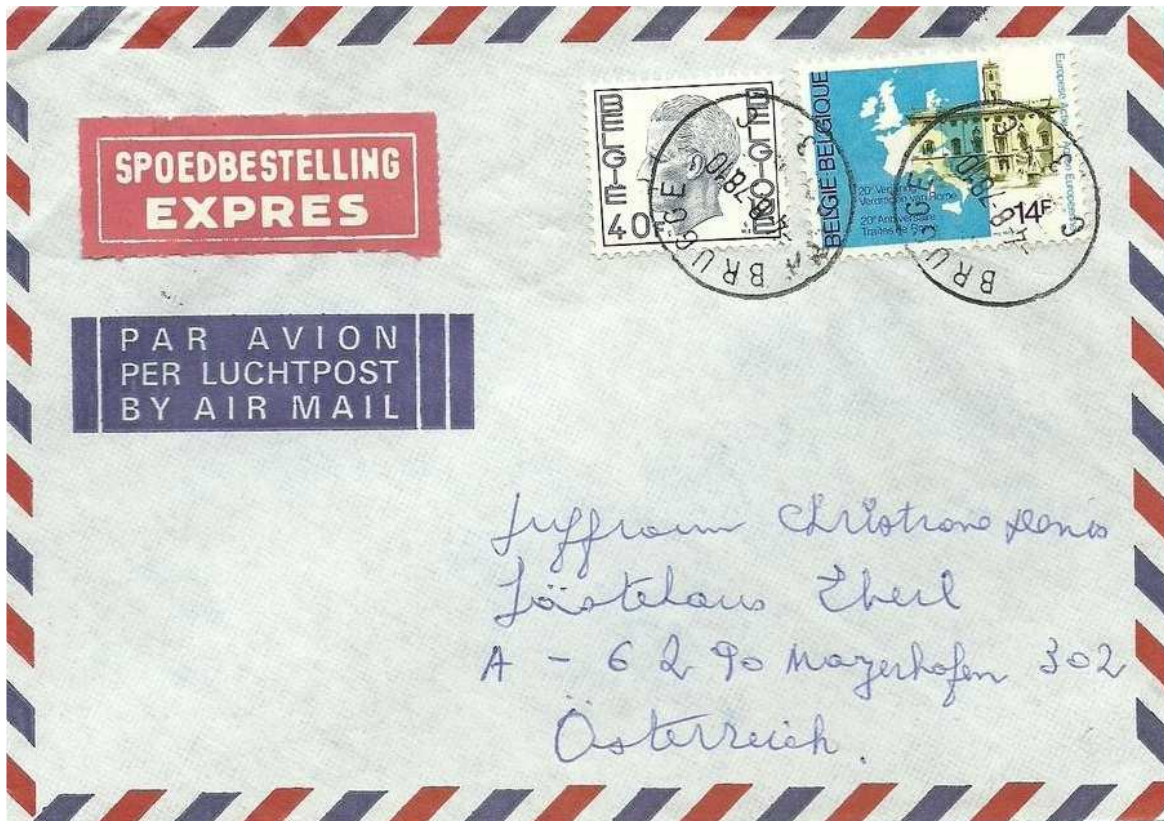 SPOEDBESTELLING
EXPRES
PAR AVION
PER LUCHTPOST
BY AIR MAIL
BELGIE
BELGIQUE
40F
BELGIE BELGIQUE
20e Verjaring
Verdragen van Rome
20e Anniversaire
Traités de Rome
14F
BRUGGE
BRUGGE
Juffrouw Christiane Denis
Gästehaus Eberl
A - 6290 Mayerhofen 302
Österreich.